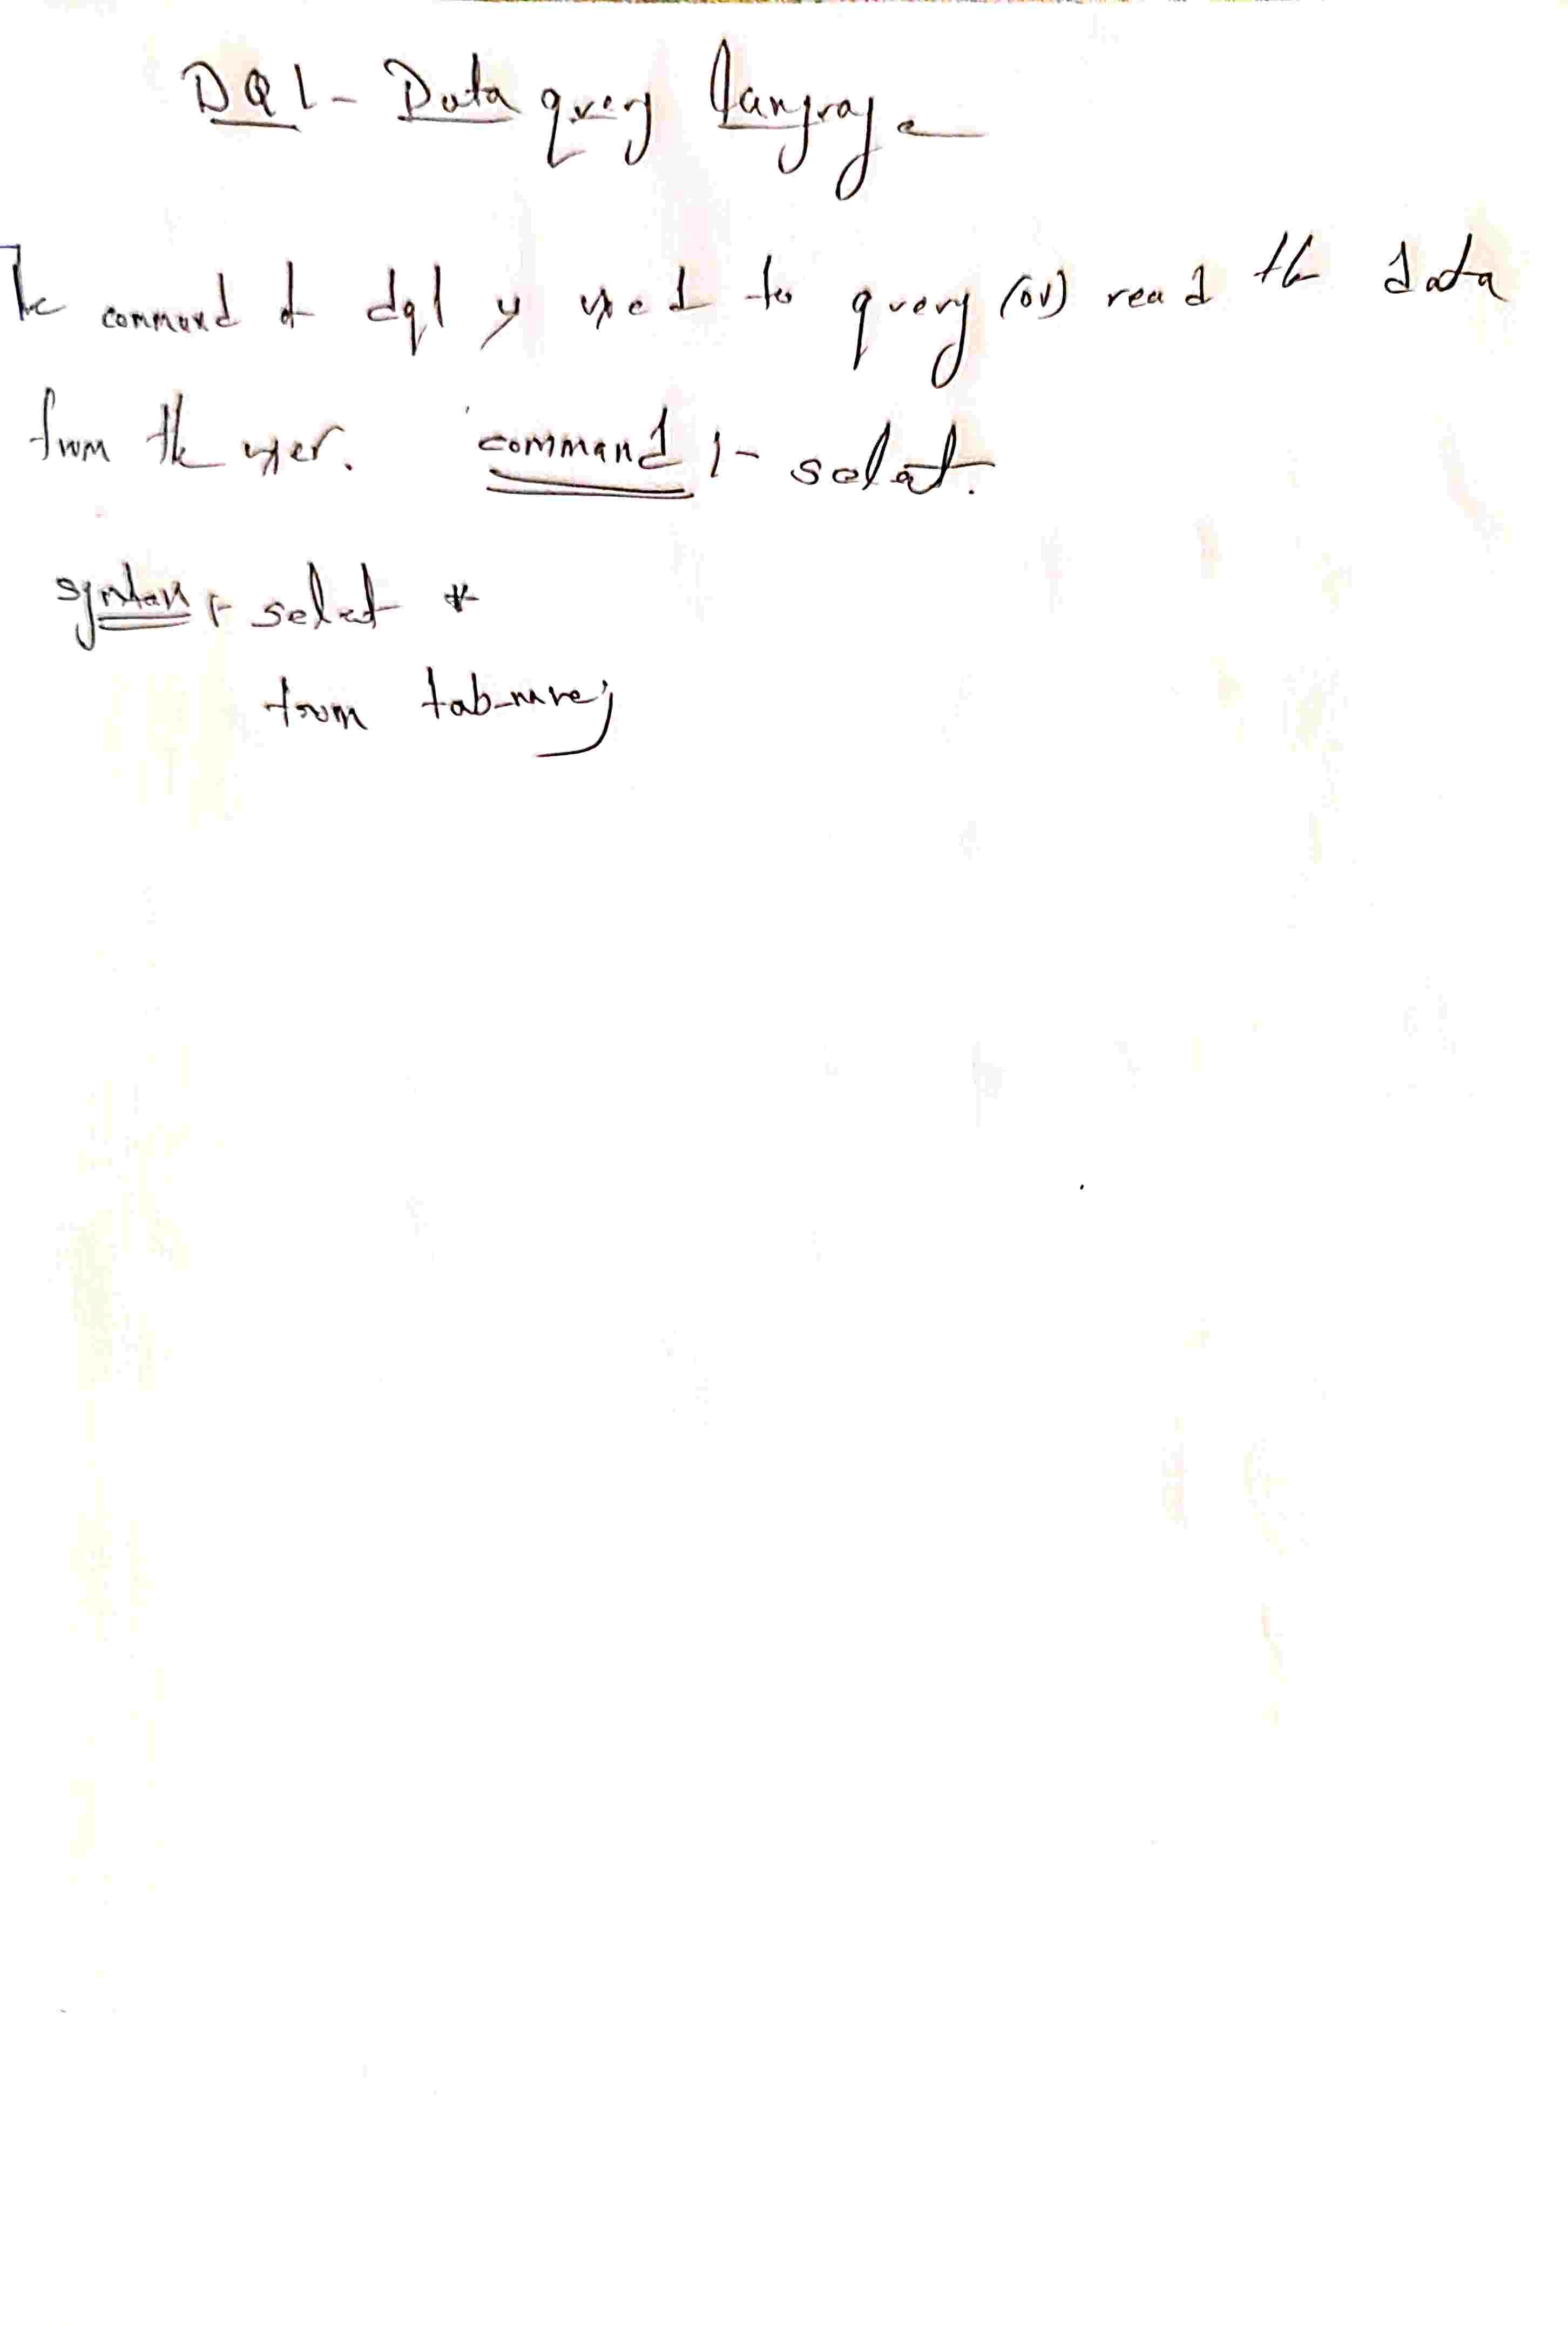 DQL - Data query language
The command of dql is used to query (or) read the data
from the user. command :- select.
syntax :- select *
from tab_name;